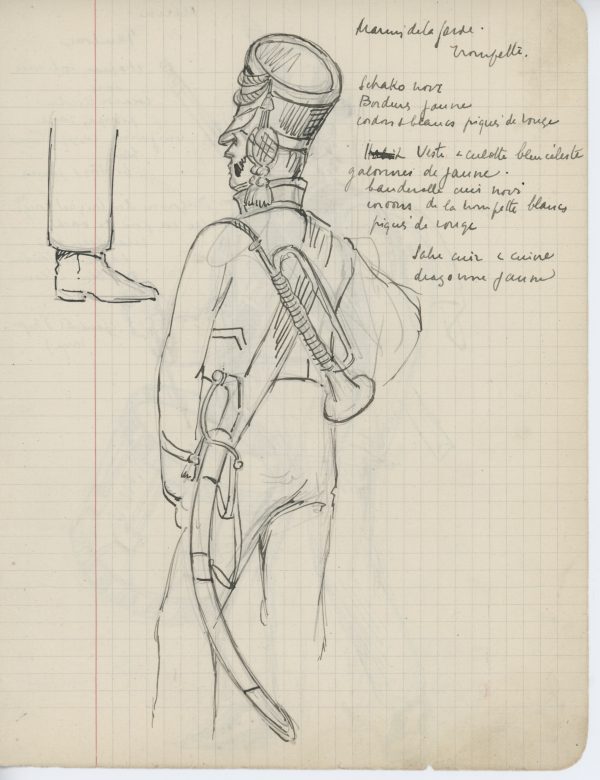 Marins de la Garde.
Trompette.
Schako noir
Bordeurs jaune
cordons blancs piqués de rouge
Habit Veste & culotte bleu céleste
galonnés de jaune.
banderolle cuir noir
cordons de la trompette blancs
piqués de rouge
Sabre cuir & cuivre
dragonne jaune